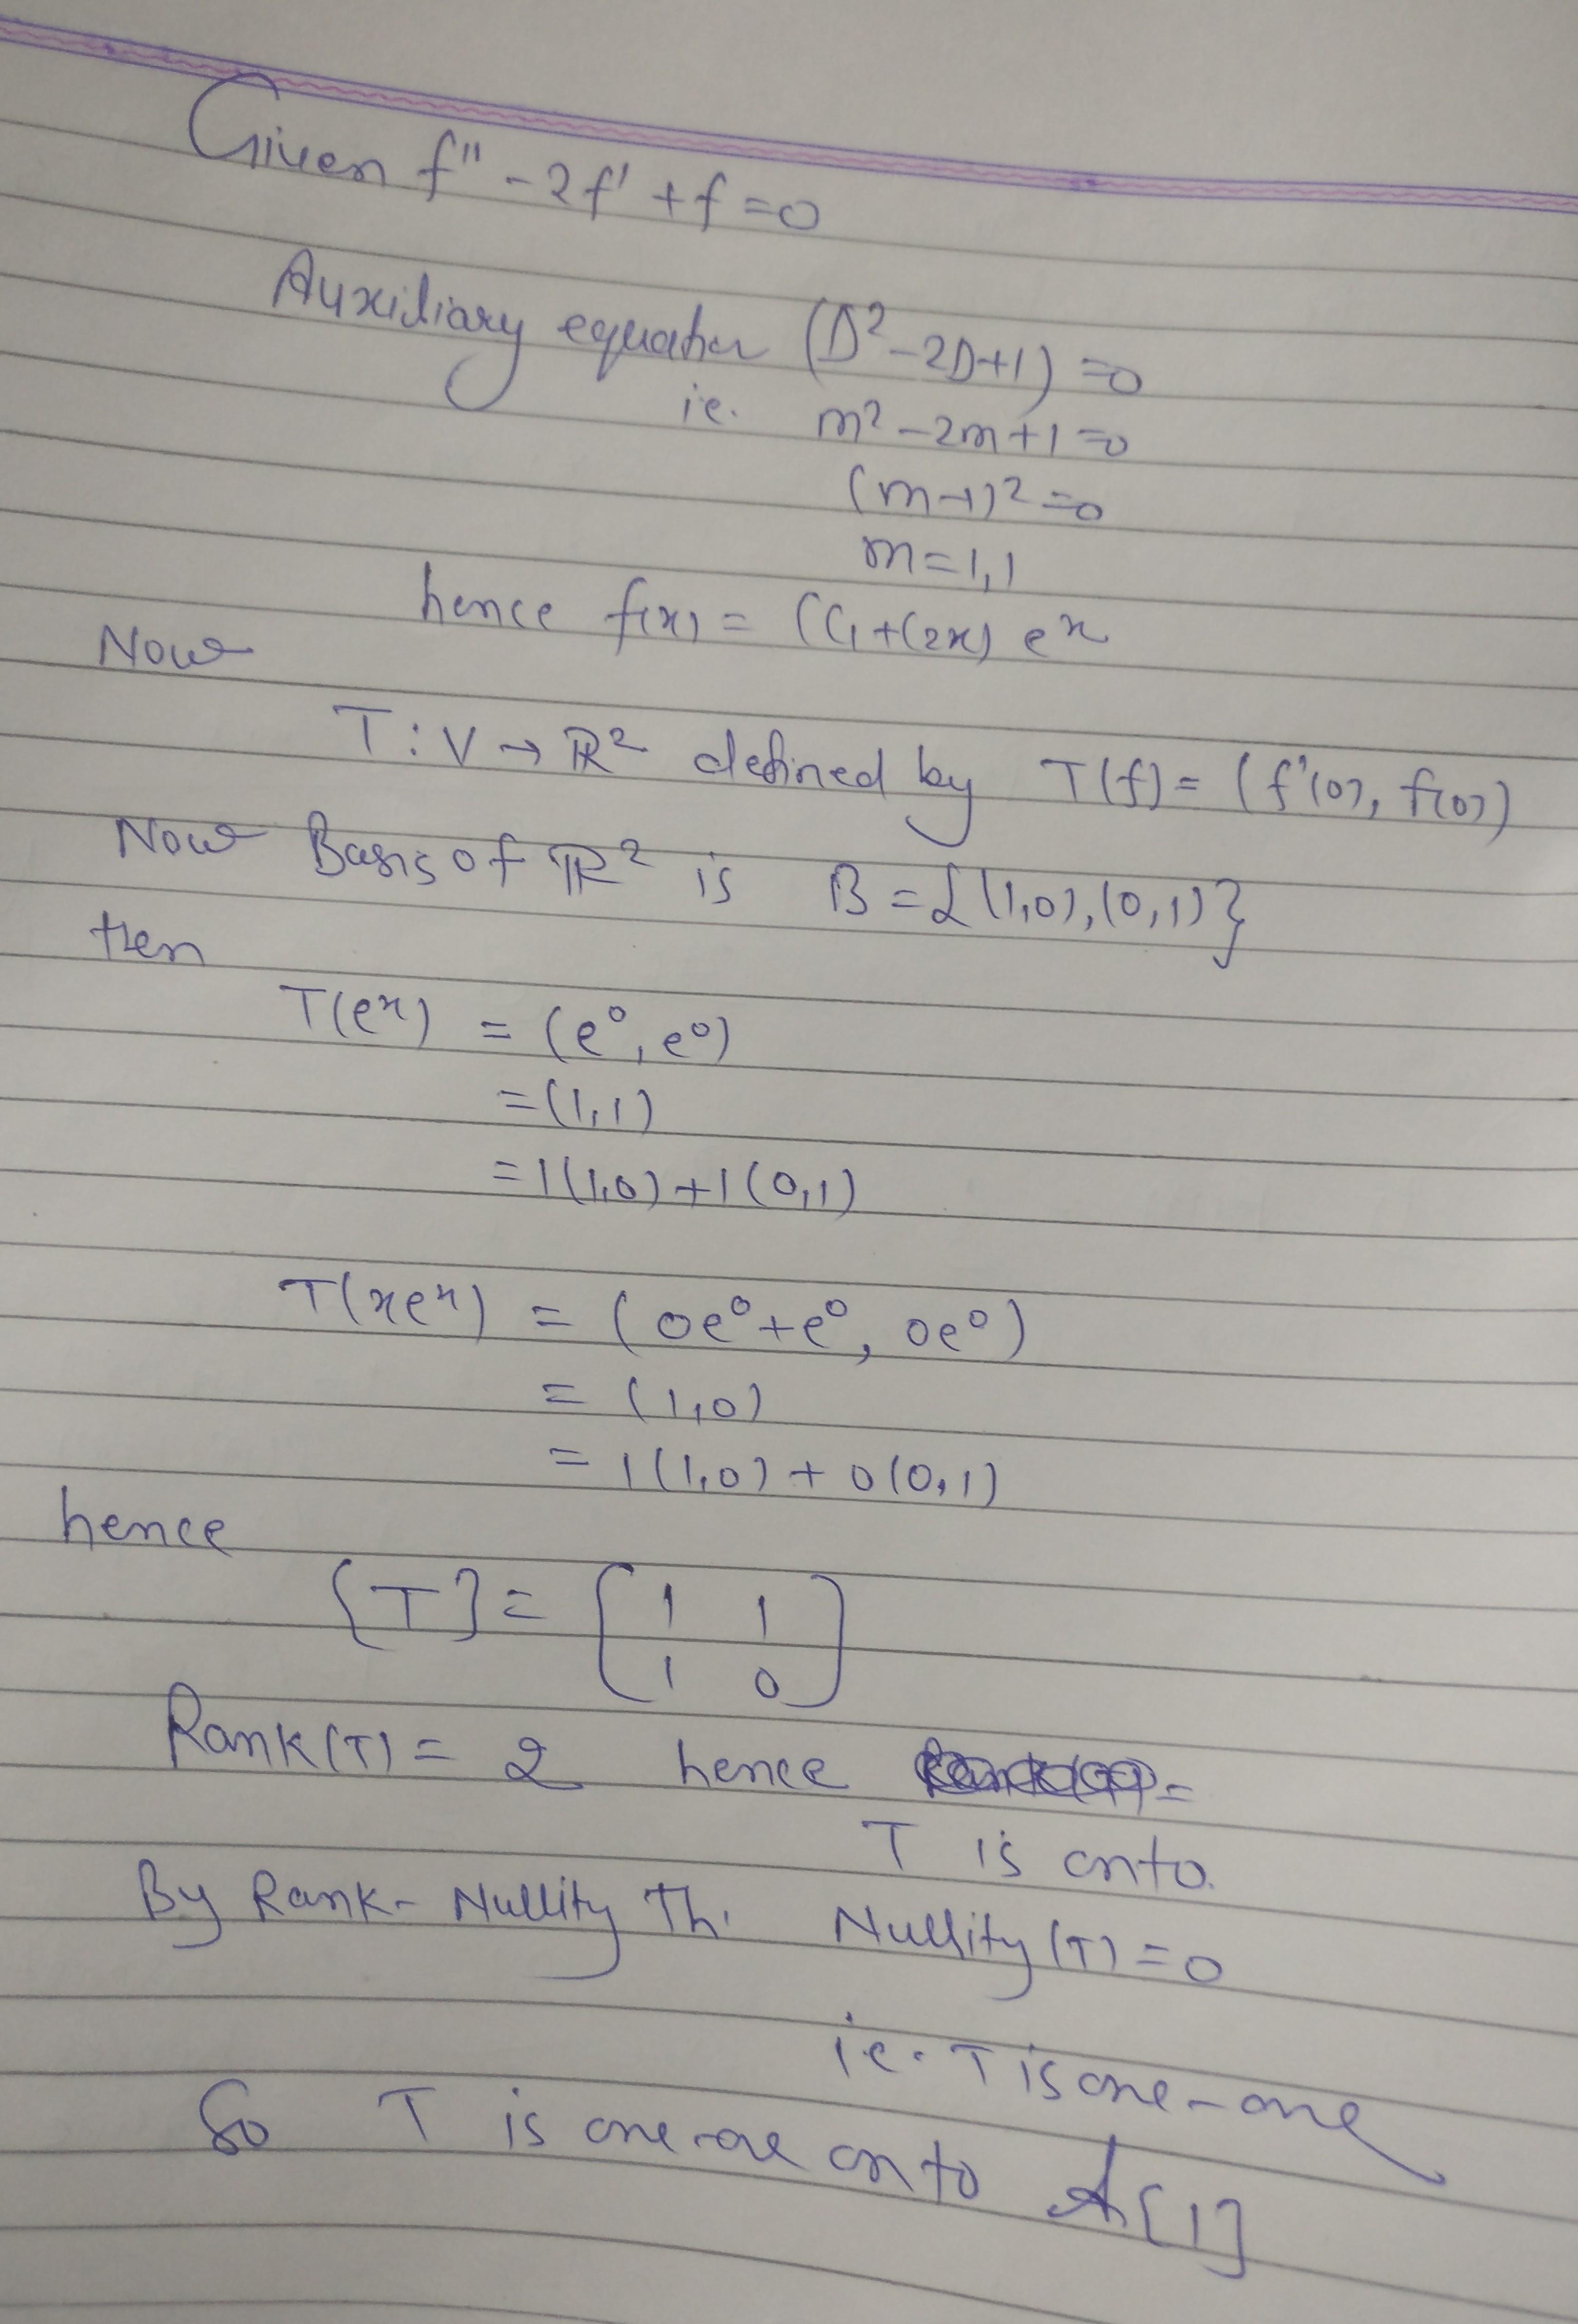 Given f'' - 2f' + f = 0
Auxiliary equation (D² - 2D + 1) = 0
i.e. m² - 2m + 1 = 0
(m-1)² = 0
m = 1, 1
hence f(x) = (C₁ + C₂x) eˣ
Now
T : V → ℝ² defined by T(f) = (f'(0), f(0))
Now Basis of ℝ² is B = {(1,0), (0,1)}
then
T(eˣ) = (e⁰, e⁰)
= (1,1)
= 1(1,0) + 1(0,1)
T(xeˣ) = (0e⁰ + e⁰, 0e⁰)
= (1,0)
= 1(1,0) + 0(0,1)
hence
[T] = [1 1
1 0]
Rank(T) = 2 hence =
T is onto.
By Rank-Nullity Th. Nullity (T) = 0
i.e. T is one-one
So T is one-one onto A[1]